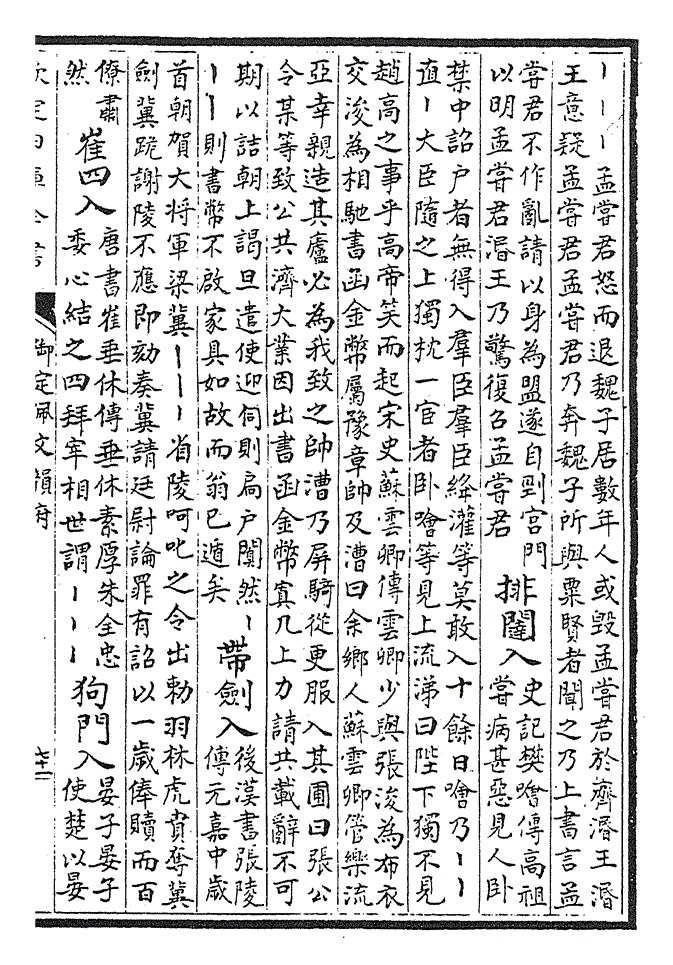 丨丨丨孟嘗君怒而退魏子居數年人或毀孟嘗君於齊湣王湣
王意疑孟嘗君孟嘗君乃奔魏子所與粟賢者聞之乃上書言孟
嘗君不作亂請以身為盟遂自剄宮門
以明孟嘗君湣王乃驚復召孟嘗君
排闥入
史記樊噲傳高祖
嘗病甚惡見人卧
禁中詔户者無得入羣臣羣臣絳灌等莫敢入十餘日噲乃丨丨
直丨大臣隨之上獨枕一宦者卧噲等見上流涕曰陛下獨不見
趙高之事乎高帝笑而起宋史蘇雲卿傳雲卿少與張浚為布衣
交浚為相馳書函金幣屬豫章帥及漕曰余鄉人蘇雲卿管樂流
亞幸親造其廬必為我致之帥漕乃屏騎從更服入其圃曰張公
令某等致公共濟大業因出書函金幣寘几上力請共載辭不可
期以詰朝上謁旦遣使迎伺則扃户闃然丨
丨丨則書幣不啟家具如故而翁已遁矣
帶劍入
後漢書張陵
傳元嘉中歲
首朝賀大将軍梁冀丨丨丨省陵呵叱之令出勅羽林虎賁奪冀
劍冀跪謝陵不應即劾奏冀請廷尉論罪有詔以一歲俸贖而百
僚肅
然
崔四入
唐書崔垂休傳垂休素厚朱全忠
委心結之四拜宰相世謂丨丨丨
狗門入
晏子晏子
使楚以晏
欽定四庫全書
御定佩文韻府